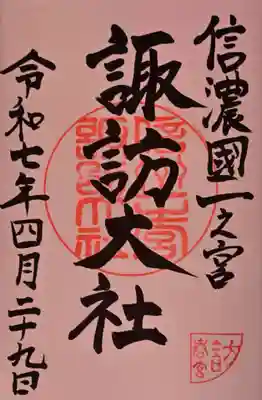 信濃國一之宮
諏訪大社
令和七年四月二十九日